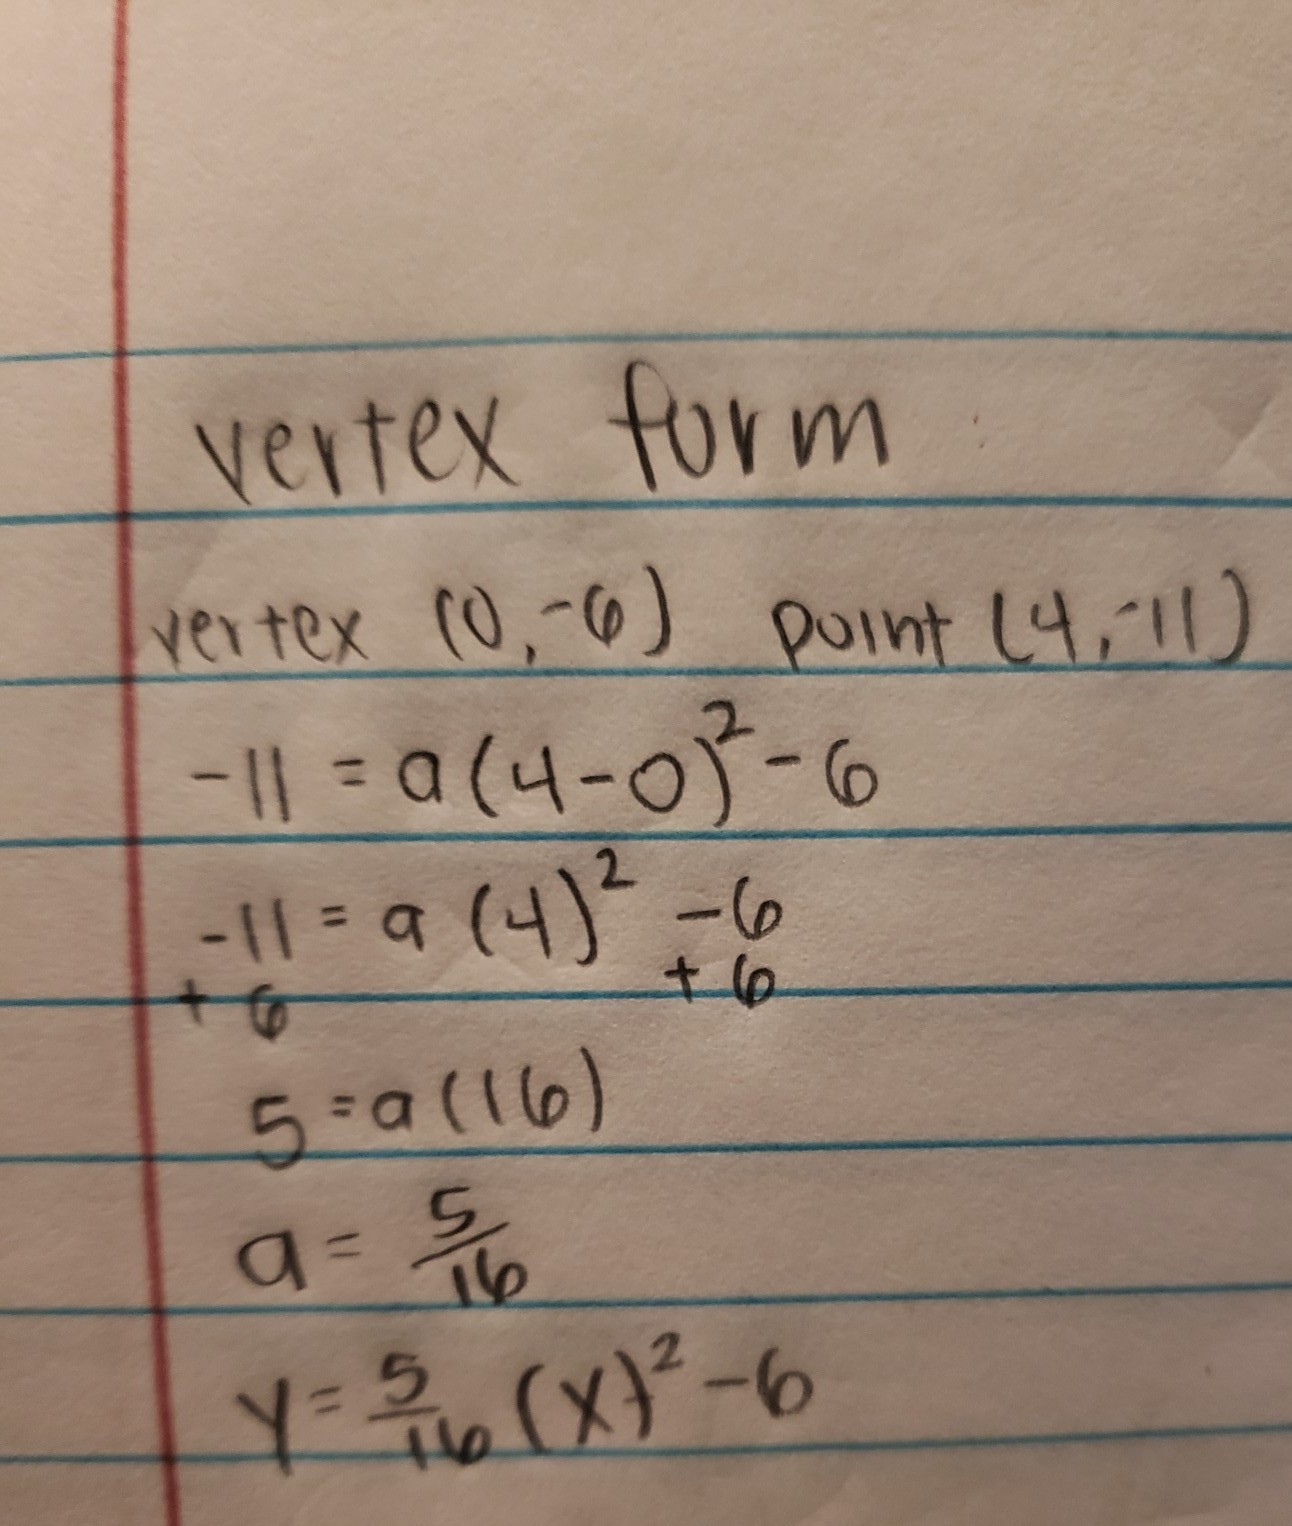 vertex form
vertex (0,-6) point (4,-11)
-11 = a(4-0)² - 6
-11 = a (4)² -6
+ 6 + 6
5 = a(16)
a = 5/16
y = 5/16 (x)² - 6